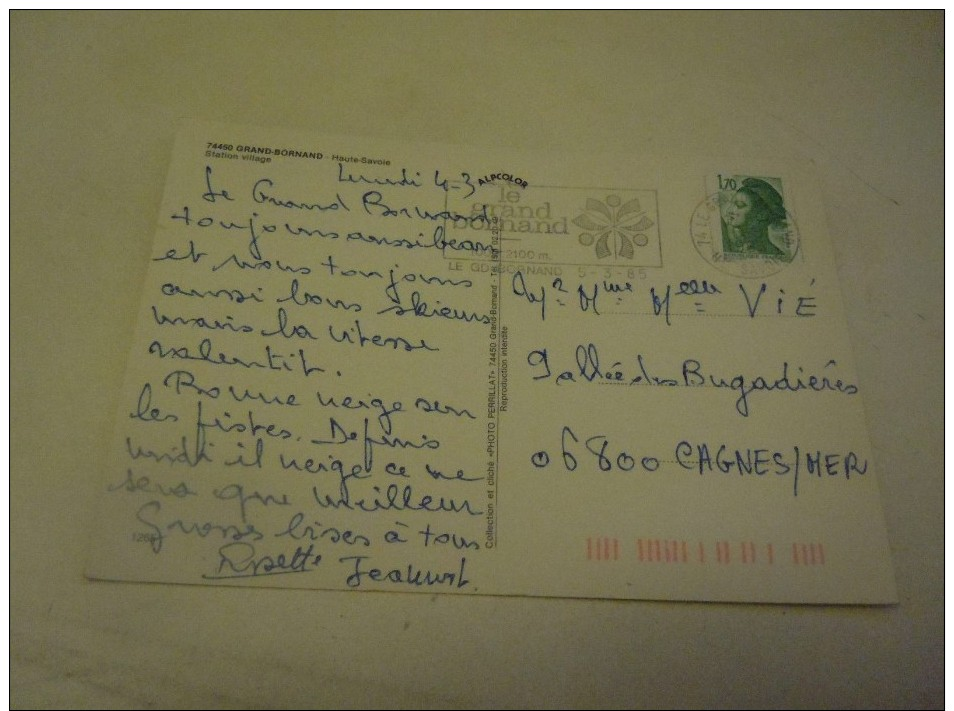 74450 GRAND-BORNAND - Haute-Savoie
Station village
Lundi 4-3
Le Grand Bornand
toujours aussi beau
et nous toujours
aussi bons skieurs
mais la vitesse
ralentit.
Bonne neige sur
les pistes. Depuis
midi il neige ce ne
sera que meilleur
Grosses bises à tous
Rosette
ALPCOLOR
le
grand
bornand
2100 m.
LE GD-BORNAND 5-3-85
1,70
Collection et cliché «PHOTO PERRILLAT» 74450 Grand-Bornand - Tél.
Reproduction interdite
Mr Mme Melle VIÉ
allée des Bugadières
06800 CAGNES/MER